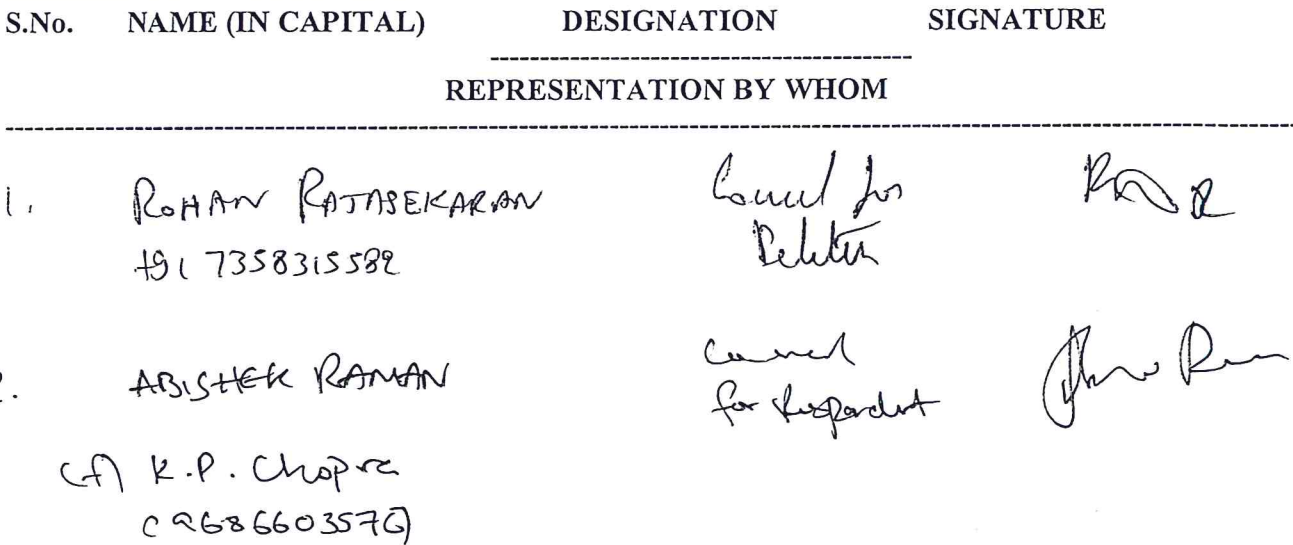 S.No. NAME (IN CAPITAL) DESIGNATION SIGNATURE
REPRESENTATION BY WHOM
1. ROHAN RAJASEKARAN Counsel for
+91 7358315582 Petitioner
2. ABISHEK RAMAN Counsel
for Respondent
K.P. Chopra
(9686603576)